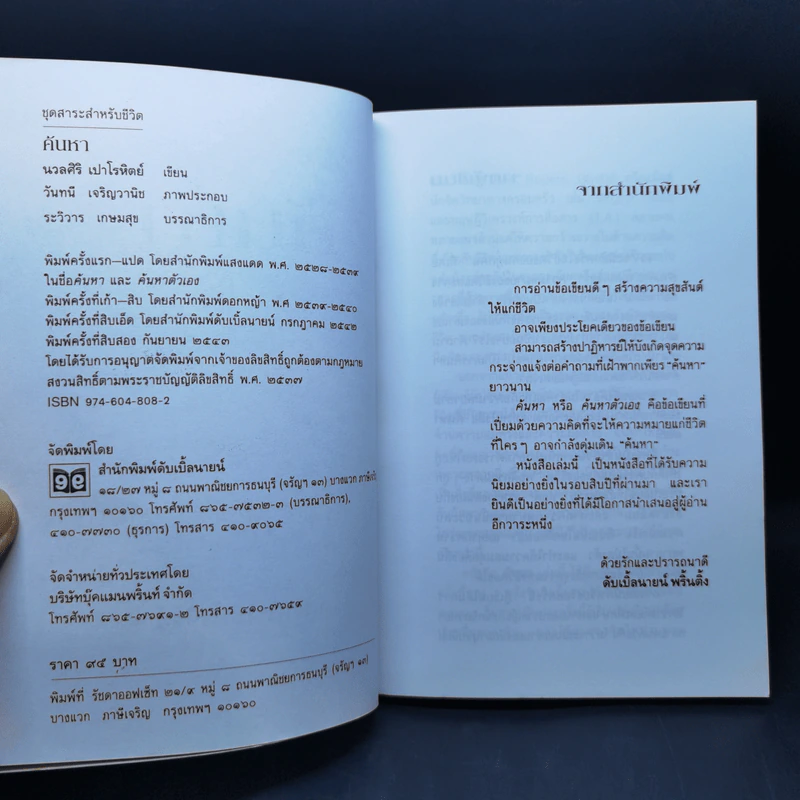 ชุดสาระสำหรับชีวิต
ค้นหา
นวลศิริ เปาโรหิตย์ เขียน
วันทนี เจริญวานิช ภาพประกอบ
ระวิวาร เกษมสุข บรรณาธิการ
พิมพ์ครั้งแรก—แปด โดยสำนักพิมพ์แสงแดด พ.ศ. ๒๕๒๘-๒๕๓๙
ในชื่อค้นหา และ ค้นหาตัวเอง
พิมพ์ครั้งที่เก้า—สิบ โดยสำนักพิมพ์ดอกหญ้า พ.ศ ๒๕๓๙-๒๕๔๐
พิมพ์ครั้งที่สิบเอ็ด โดยสำนักพิมพ์ดับเบิ้ลนายน์ กรกฎาคม ๒๕๔๒
พิมพ์ครั้งที่สิบสอง กันยายน ๒๕๔๓
โดยได้รับการอนุญาตจัดพิมพ์จากเจ้าของลิขสิทธิ์ถูกต้องตามกฎหมาย
สงวนสิทธิ์ตามพระราชบัญญัติลิขสิทธิ์ พ.ศ. ๒๕๓๗
ISBN 974-604-808-2
จัดพิมพ์โดย
๙๙ สำนักพิมพ์ดับเบิ้ลนายน์
๑๘/๒๗ หมู่ ๘ ถนนพาณิชยการธนบุรี (จรัญฯ ๑๓) บางแวก ภาษีเจริญ
กรุงเทพฯ ๑๐๑๖๐ โทรศัพท์ ๘๖๕-๗๕๓๒-๓ (บรรณาธิการ),
๔๑๐-๗๗๓๐ (ธุรการ) โทรสาร ๔๑๐-๙๐๖๕
จัดจำหน่ายทั่วประเทศโดย
บริษัทบุ๊คแมนพริ้นท์ จำกัด
โทรศัพท์ ๘๖๕-๗๖๙๑-๒ โทรสาร ๔๑๐-๗๖๕๙
ราคา ๙๕ บาท
พิมพ์ที่ รัชดาออฟเซ็ท ๒๑/๙ หมู่ ๘ ถนนพาณิชยการธนบุรี (จรัญฯ ๑๓)
บางแวก ภาษีเจริญ กรุงเทพฯ ๑๐๑๖๐
จากสำนักพิมพ์
การอ่านข้อเขียนดี ๆ สร้างความสุขสันต์
ให้แก่ชีวิต
อาจเพียงประโยคเดียวของข้อเขียน
สามารถสร้างปาฏิหารย์ให้บังเกิดจุดความ
กระจ่างแจ้งต่อคำถามที่เฝ้าพากเพียร "ค้นหา"
ยาวนาน
ค้นหา หรือ ค้นหาตัวเอง คือข้อเขียนที่
เปี่ยมด้วยความคิดที่จะให้ความหมายแก่ชีวิต
ที่ใครๆ อาจกำลังดุ่มเดิน "ค้นหา"
หนังสือเล่มนี้ เป็นหนังสือที่ได้รับความ
นิยมอย่างยิ่งในรอบสิบปีที่ผ่านมา และเรา
ยินดีเป็นอย่างยิ่งที่ได้มีโอกาสนำเสนอสู่ผู้อ่าน
อีกวาระหนึ่ง
ด้วยรักและปรารถนาดี
ดับเบิ้ลนายน์ พริ้นติ้ง